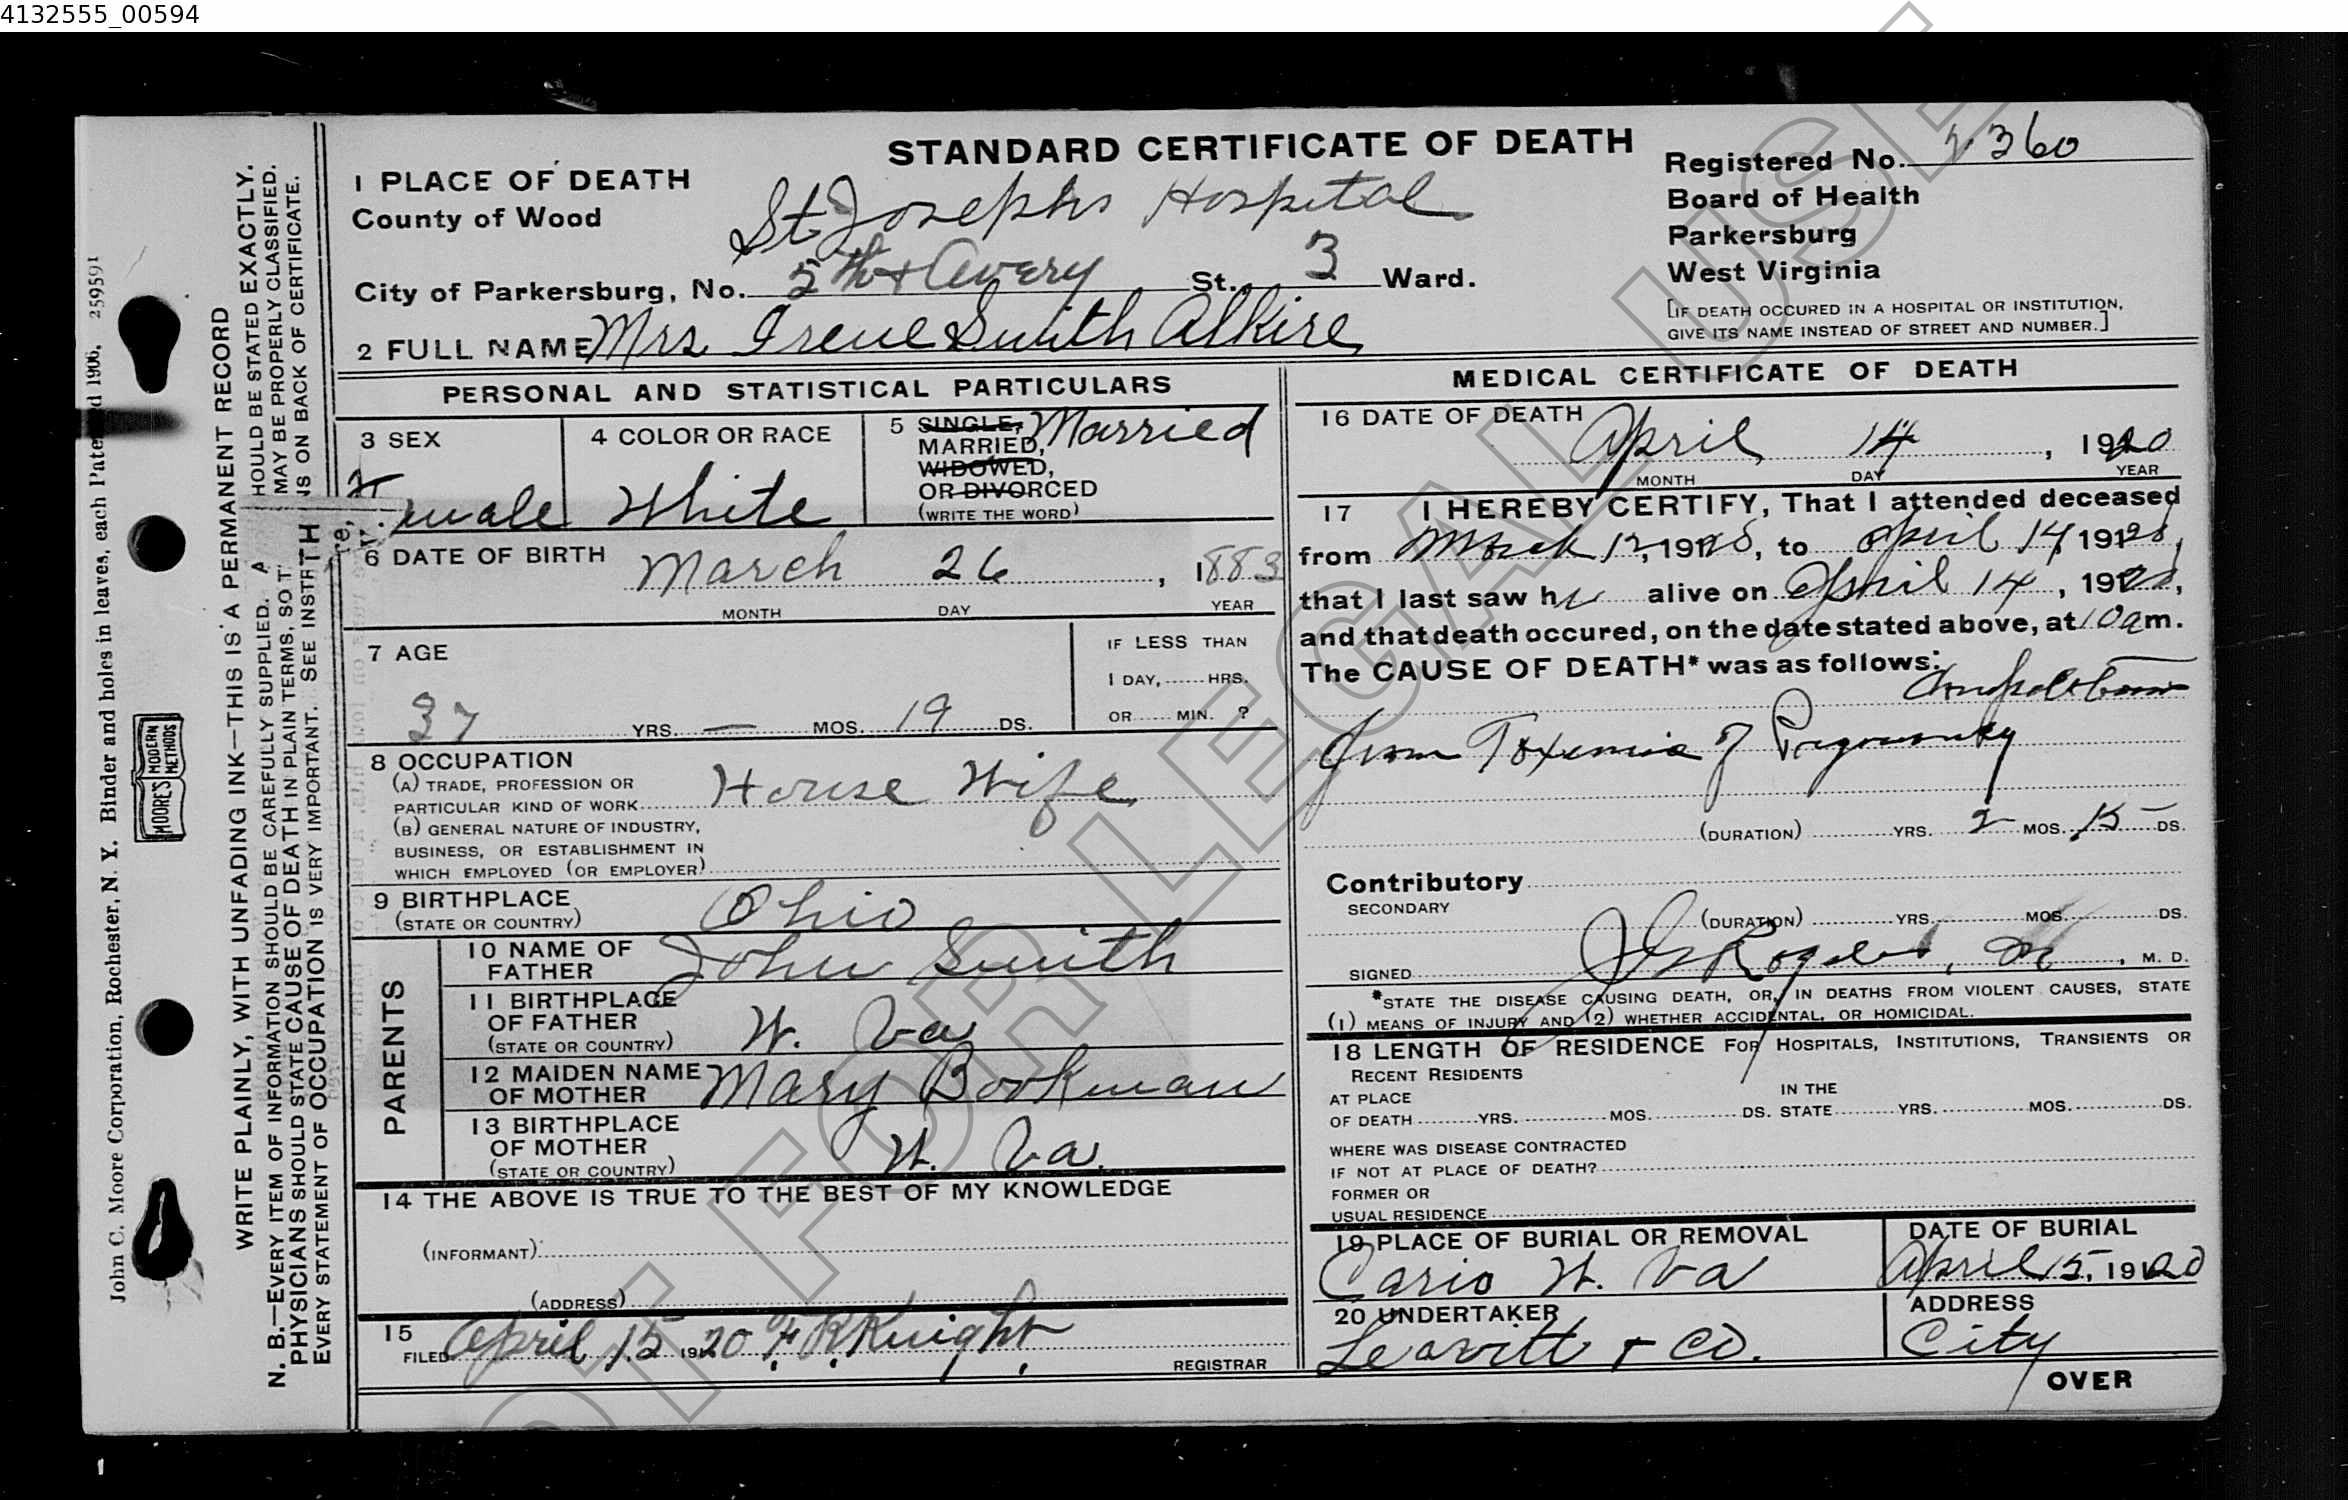 4132555_00594
STANDARD CERTIFICATE OF DEATH
Registered No. 2360
Board of Health
Parkersburg
West Virginia
[IF DEATH OCCURED IN A HOSPITAL OR INSTITUTION,
GIVE ITS NAME INSTEAD OF STREET AND NUMBER.]
1 PLACE OF DEATH
County of Wood
St Josephs Hospital
City of Parkersburg, No. 5th + Avery St. 3 Ward.
2 FULL NAME Mrs Irene Smith Alkire
PERSONAL AND STATISTICAL PARTICULARS
3 SEX
Female
4 COLOR OR RACE
White
5 SINGLE, Married
MARRIED,
WIDOWED,
OR DIVORCED
(WRITE THE WORD)
6 DATE OF BIRTH
March 26, 1883
MONTH DAY YEAR
7 AGE
37 YRS. — MOS. 19 DS.
IF LESS THAN
1 DAY, HRS.
OR MIN. ?
8 OCCUPATION
(A) TRADE, PROFESSION OR
PARTICULAR KIND OF WORK House Wife
(B) GENERAL NATURE OF INDUSTRY,
BUSINESS, OR ESTABLISHMENT IN
WHICH EMPLOYED (OR EMPLOYER)
9 BIRTHPLACE
(STATE OR COUNTRY) Ohio
PARENTS
10 NAME OF
FATHER John Smith
11 BIRTHPLACE
OF FATHER
(STATE OR COUNTRY) W. Va
12 MAIDEN NAME
OF MOTHER Mary Bookman
13 BIRTHPLACE
OF MOTHER
(STATE OR COUNTRY) W. Va.
14 THE ABOVE IS TRUE TO THE BEST OF MY KNOWLEDGE
(INFORMANT)
(ADDRESS)
15
FILED April 15 1920 F. R. Knight
REGISTRAR
MEDICAL CERTIFICATE OF DEATH
16 DATE OF DEATH
April 14, 1920
MONTH DAY YEAR
17 I HEREBY CERTIFY, That I attended deceased
from March 12, 1920, to April 14, 1920,
that I last saw her alive on April 14, 1920,
and that death occured, on the date stated above, at 10 a m.
The CAUSE OF DEATH* was as follows:
from Toxemia of Pregnancy
(DURATION) YRS. 2 MOS. 15 DS.
Contributory
SECONDARY
(DURATION) YRS. MOS. DS.
SIGNED Rogers, M. D.
*STATE THE DISEASE CAUSING DEATH, OR, IN DEATHS FROM VIOLENT CAUSES, STATE
(1) MEANS OF INJURY AND (2) WHETHER ACCIDENTAL, OR HOMICIDAL.
18 LENGTH OF RESIDENCE FOR HOSPITALS, INSTITUTIONS, TRANSIENTS OR
RECENT RESIDENTS
AT PLACE IN THE
OF DEATH YRS. MOS. DS. STATE YRS. MOS. DS.
WHERE WAS DISEASE CONTRACTED
IF NOT AT PLACE OF DEATH?
FORMER OR
USUAL RESIDENCE
19 PLACE OF BURIAL OR REMOVAL
Cario W. Va
DATE OF BURIAL
April 15, 1920
20 UNDERTAKER
Leavitt + Co.
ADDRESS
City
OVER
WRITE PLAINLY, WITH UNFADING INK—THIS IS A PERMANENT RECORD
N. B.—EVERY ITEM OF INFORMATION SHOULD BE CAREFULLY SUPPLIED. A HOULD BE STATED EXACTLY.
PHYSICIANS SHOULD STATE CAUSE OF DEATH IN PLAIN TERMS, SO T MAY BE PROPERLY CLASSIFIED.
EVERY STATEMENT OF OCCUPATION IS VERY IMPORTANT. SEE INSTR NS ON BACK OF CERTIFICATE.
John C. Moore Corporation, Rochester, N. Y. Binder and holes in leaves, each Pate d 1906, 259591
MOORE'S MODERN METHODS
OT FOR LEGAL USE